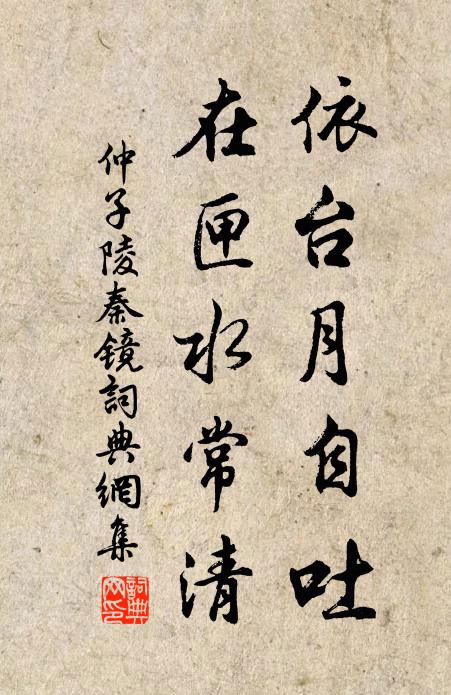 依台月自吐
在匣水常清
仲子陵秦镜詞典網集
詞典
网印